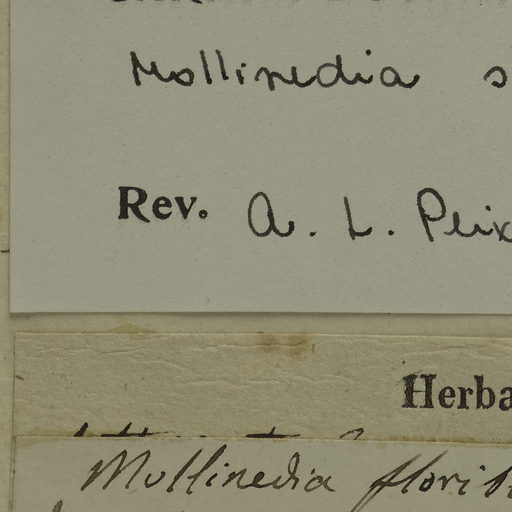 Mollinedia s
Rev. A. L. Peix
Herba
Mollinedia flori